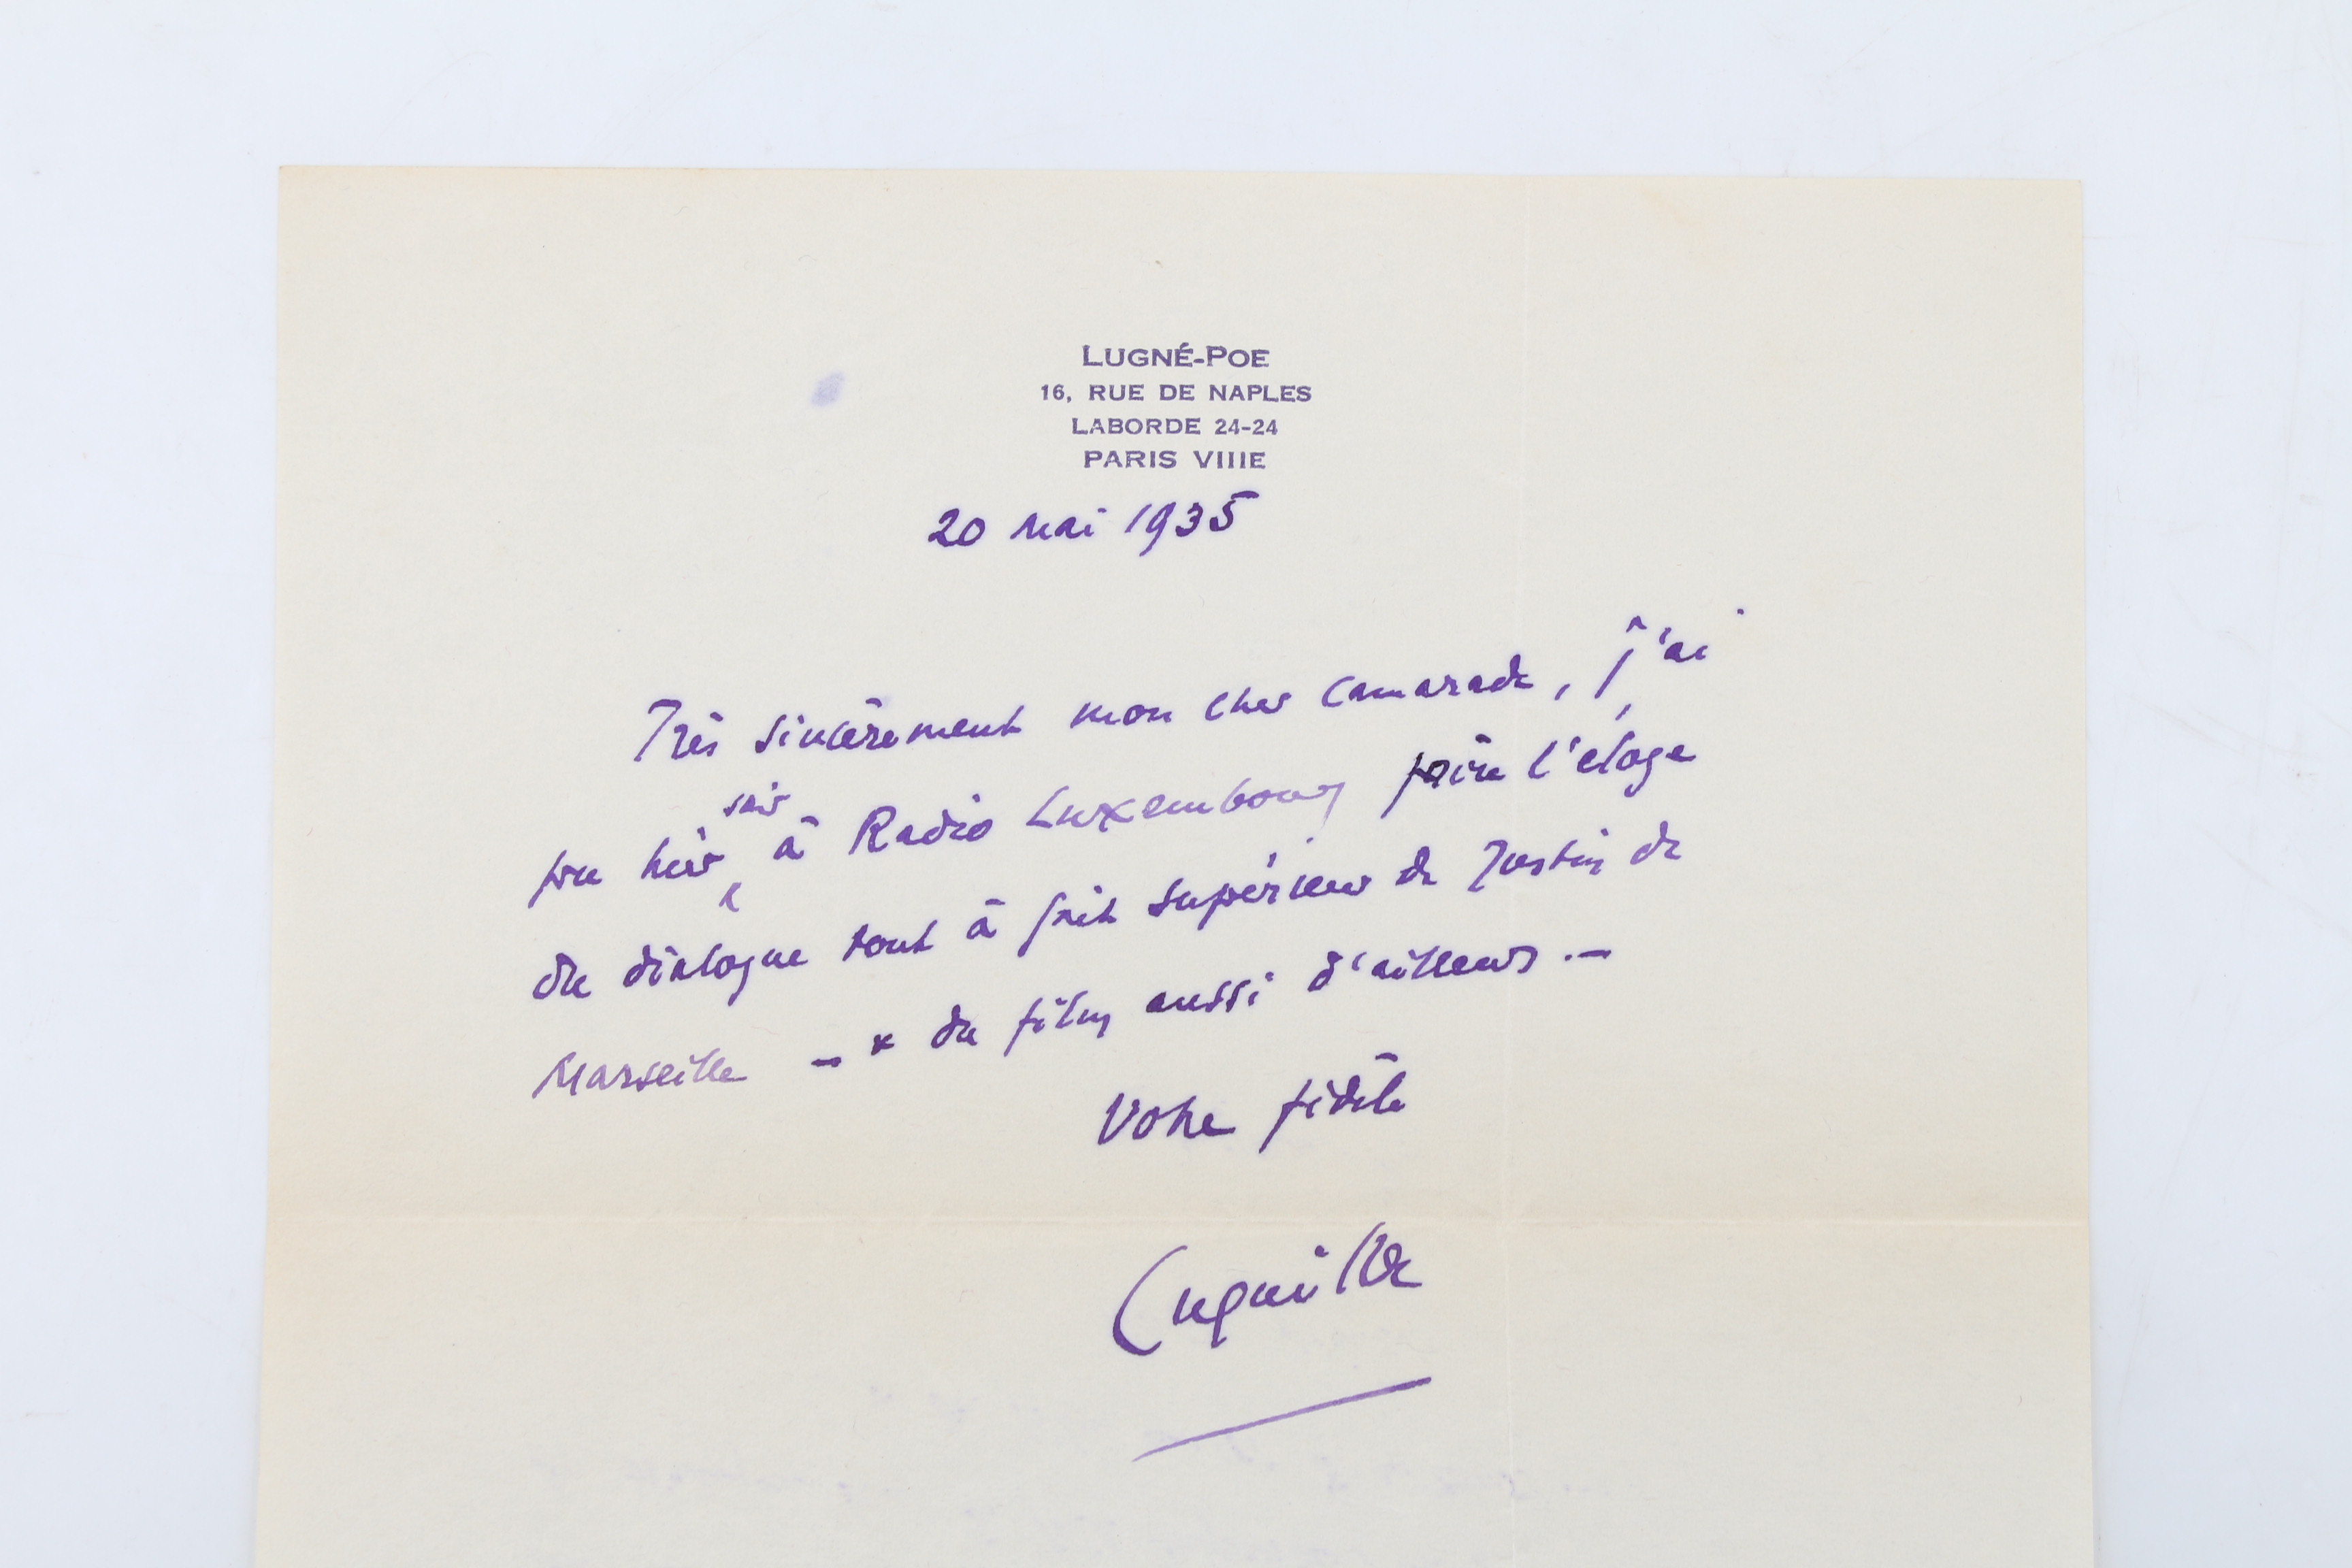 LUGNÉ-POE
16, RUE DE NAPLES
LABORDE 24-24
PARIS VIIIE
20 mai 1935
Très sincèrement mon cher camarade, j'ai
pu hier soir à Radio Luxembourg faire l'éloge
du dialogue tout à fait supérieur de Justin de
Marseille – * du film aussi d'ailleurs. –
Votre fidèle